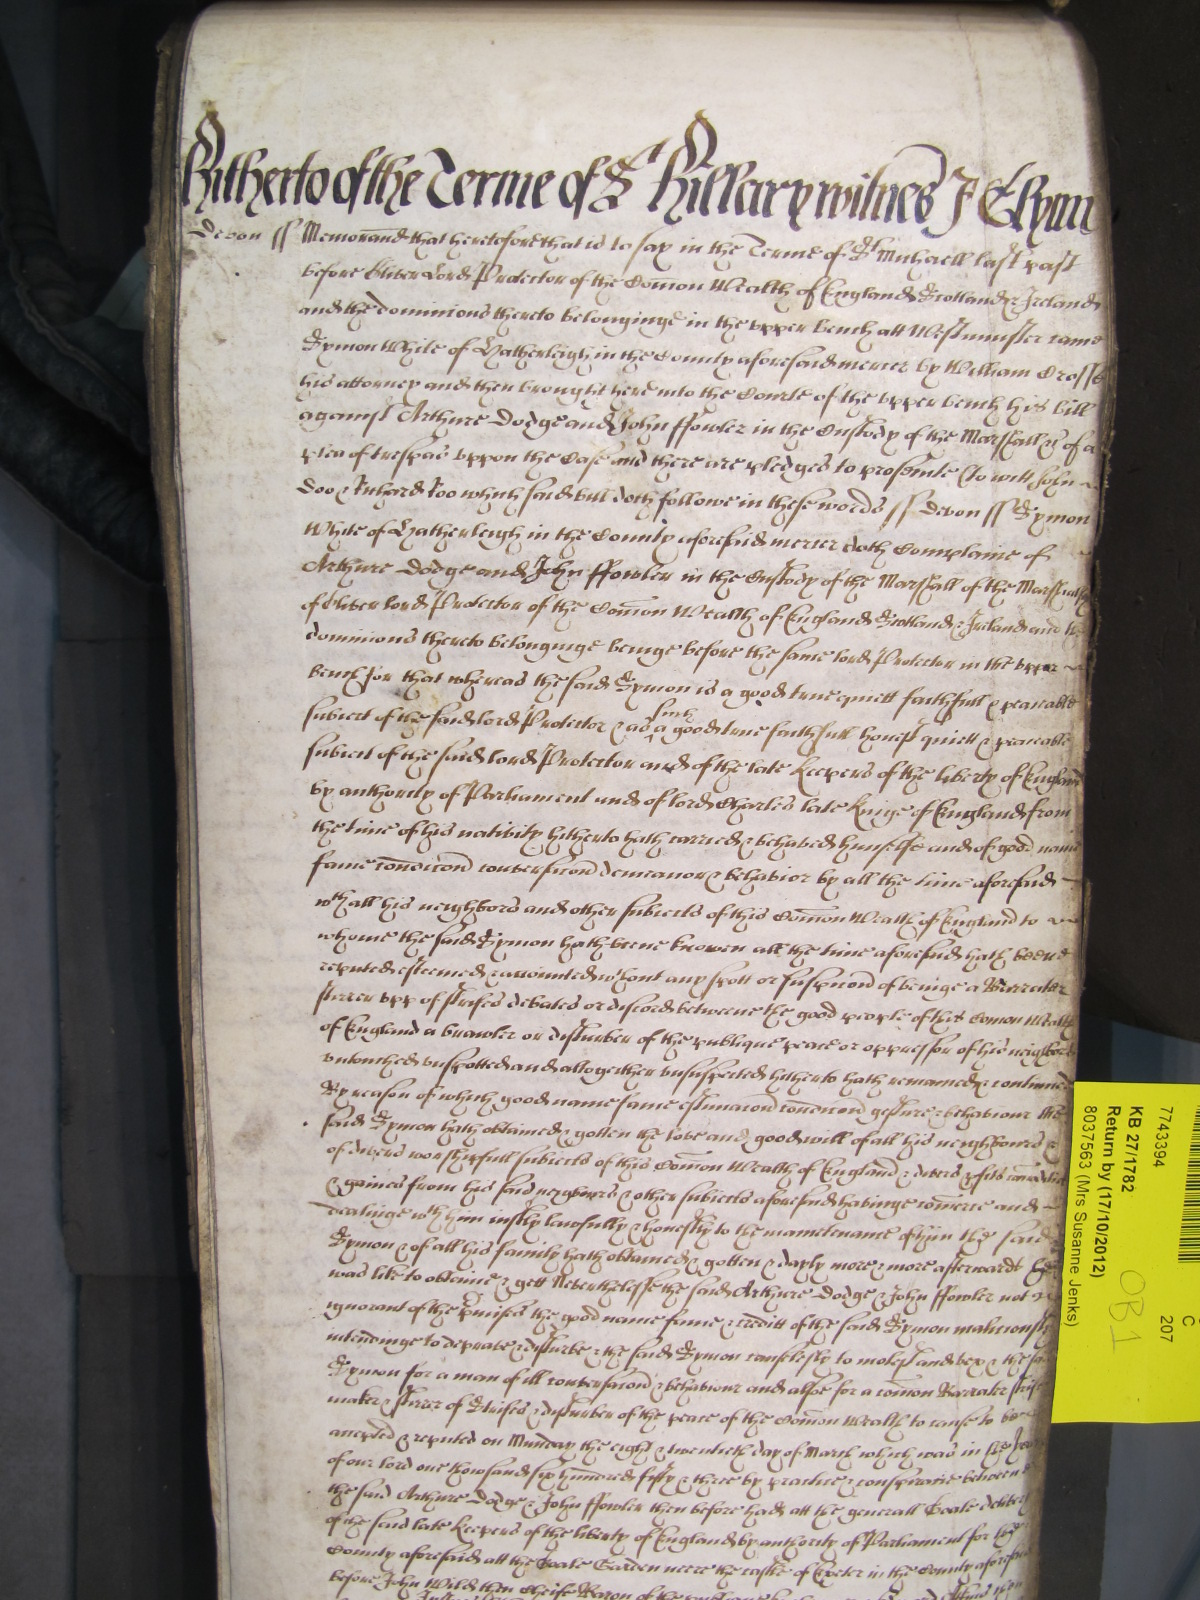 Hitherto of the Terme of St Hillary witnes J
Devon ss Memorand that heretofore that is to say in the Terme of St Michaell last past
before Oliver Lord Protector of the Comon Wealth of England Scotland & Ireland
and the dominions thereto belonginge in the upper bench att Westminster came
Symon White of Hatherleigh in the County aforesaid mercer by William Crosse
his attorney and then brought here into the Courte of the upper bench his bill
against Arthure Dodge and John ffowler in the Custody of the Marshall &c of a
plea of trespas uppon the Case and there are pledges to prosecute to witt John
Doo & Richard Roo which said bill doth followe in these words ss Devon ss Symon
White of Hatherleigh in the County aforesaid mercer doth Complaine of
Arthure Dodge and John ffowler in the Custody of the Marshall of the Marshalsey
of Oliver lord Protector of the Comon Wealth of England Scotland & Ireland and the
dominions thereto belonginge beinge before the same lord Protector in the upper
bench for that whereas the said Symon is a good true quiett faithfull & peaceable
subiect of the said lord Protector & as such a good true faithfull honest quiett & peaceable
subiect of the said lord Protector and of the late Keepers of the liberty of England
by authority of Parliament and of lord Charles late Kinge of England from
the time of his nativity hitherto hath carried & behaved himselfe and of good name
fame condicond conversacond demeanor & behavior by all the time aforesaid
wth all his neighbors and other subiects of this Comon Wealth of England to
whome the said Symon hath beene knowen all the time aforesaid hath beene
reputed esteemed & accounted wthout any spott or suspicond of beinge a Barrater
stirrer upp of strifes debates or discord betweene the good people of this Comon Wealth
of England a brawler or disturber of the publique peace or oppressor of his neighbors
untouched unspotted and altogether unsuspected hitherto hath remained & continued
By reason of which good name fame estimacond condicond gesture & behaviour the
said Symon hath obtained & gotten the love and good will of all his neighbours &
of divers worshipfull subiects of this Comon Wealth of England & divers pfits
& gaines from his said neighbors & other subiects aforesaid havinge comerce and
dealinge wth him iustly lawfully & honestly to the maintenance of him the said
Symon & of all his family hath obtained & gotten & dayly more & more afterwards
was like to obteine & gett Neverthelesse the said Arthure Dodge & John ffowler not
ignorant of the pmises the good name fame & creditt of the said Symon malitiously
intendinge to deprave & disturbe & the said Symon causelesly to molest and vex & the said
Symon for a man of ill conversacond & behaviour and alsoe for a comon Barrater strife
maker & stirrer of Strifes & disturber of the peace of the Comon Wealth to cause to be
accepted & reputed on Munday the eight & twentieth day of March which was in the year
of our lord one thowsand six hundred fifty & three by practice & conspiracie betweene
the said Arthure Dodge & John ffowler then before had att the generall Goale delivery
of the said late Keepers of the liberty of England by authority of Parliament for the
County aforesaid att the Goale Garden neere the castle of Exeter in the County aforesaid
before John Wild then Cheife Baron of the
7743394
C
207
KB 27/1782
Return by (17/10/2012)
8037563 (Mrs Susanne Jenks)
OB1